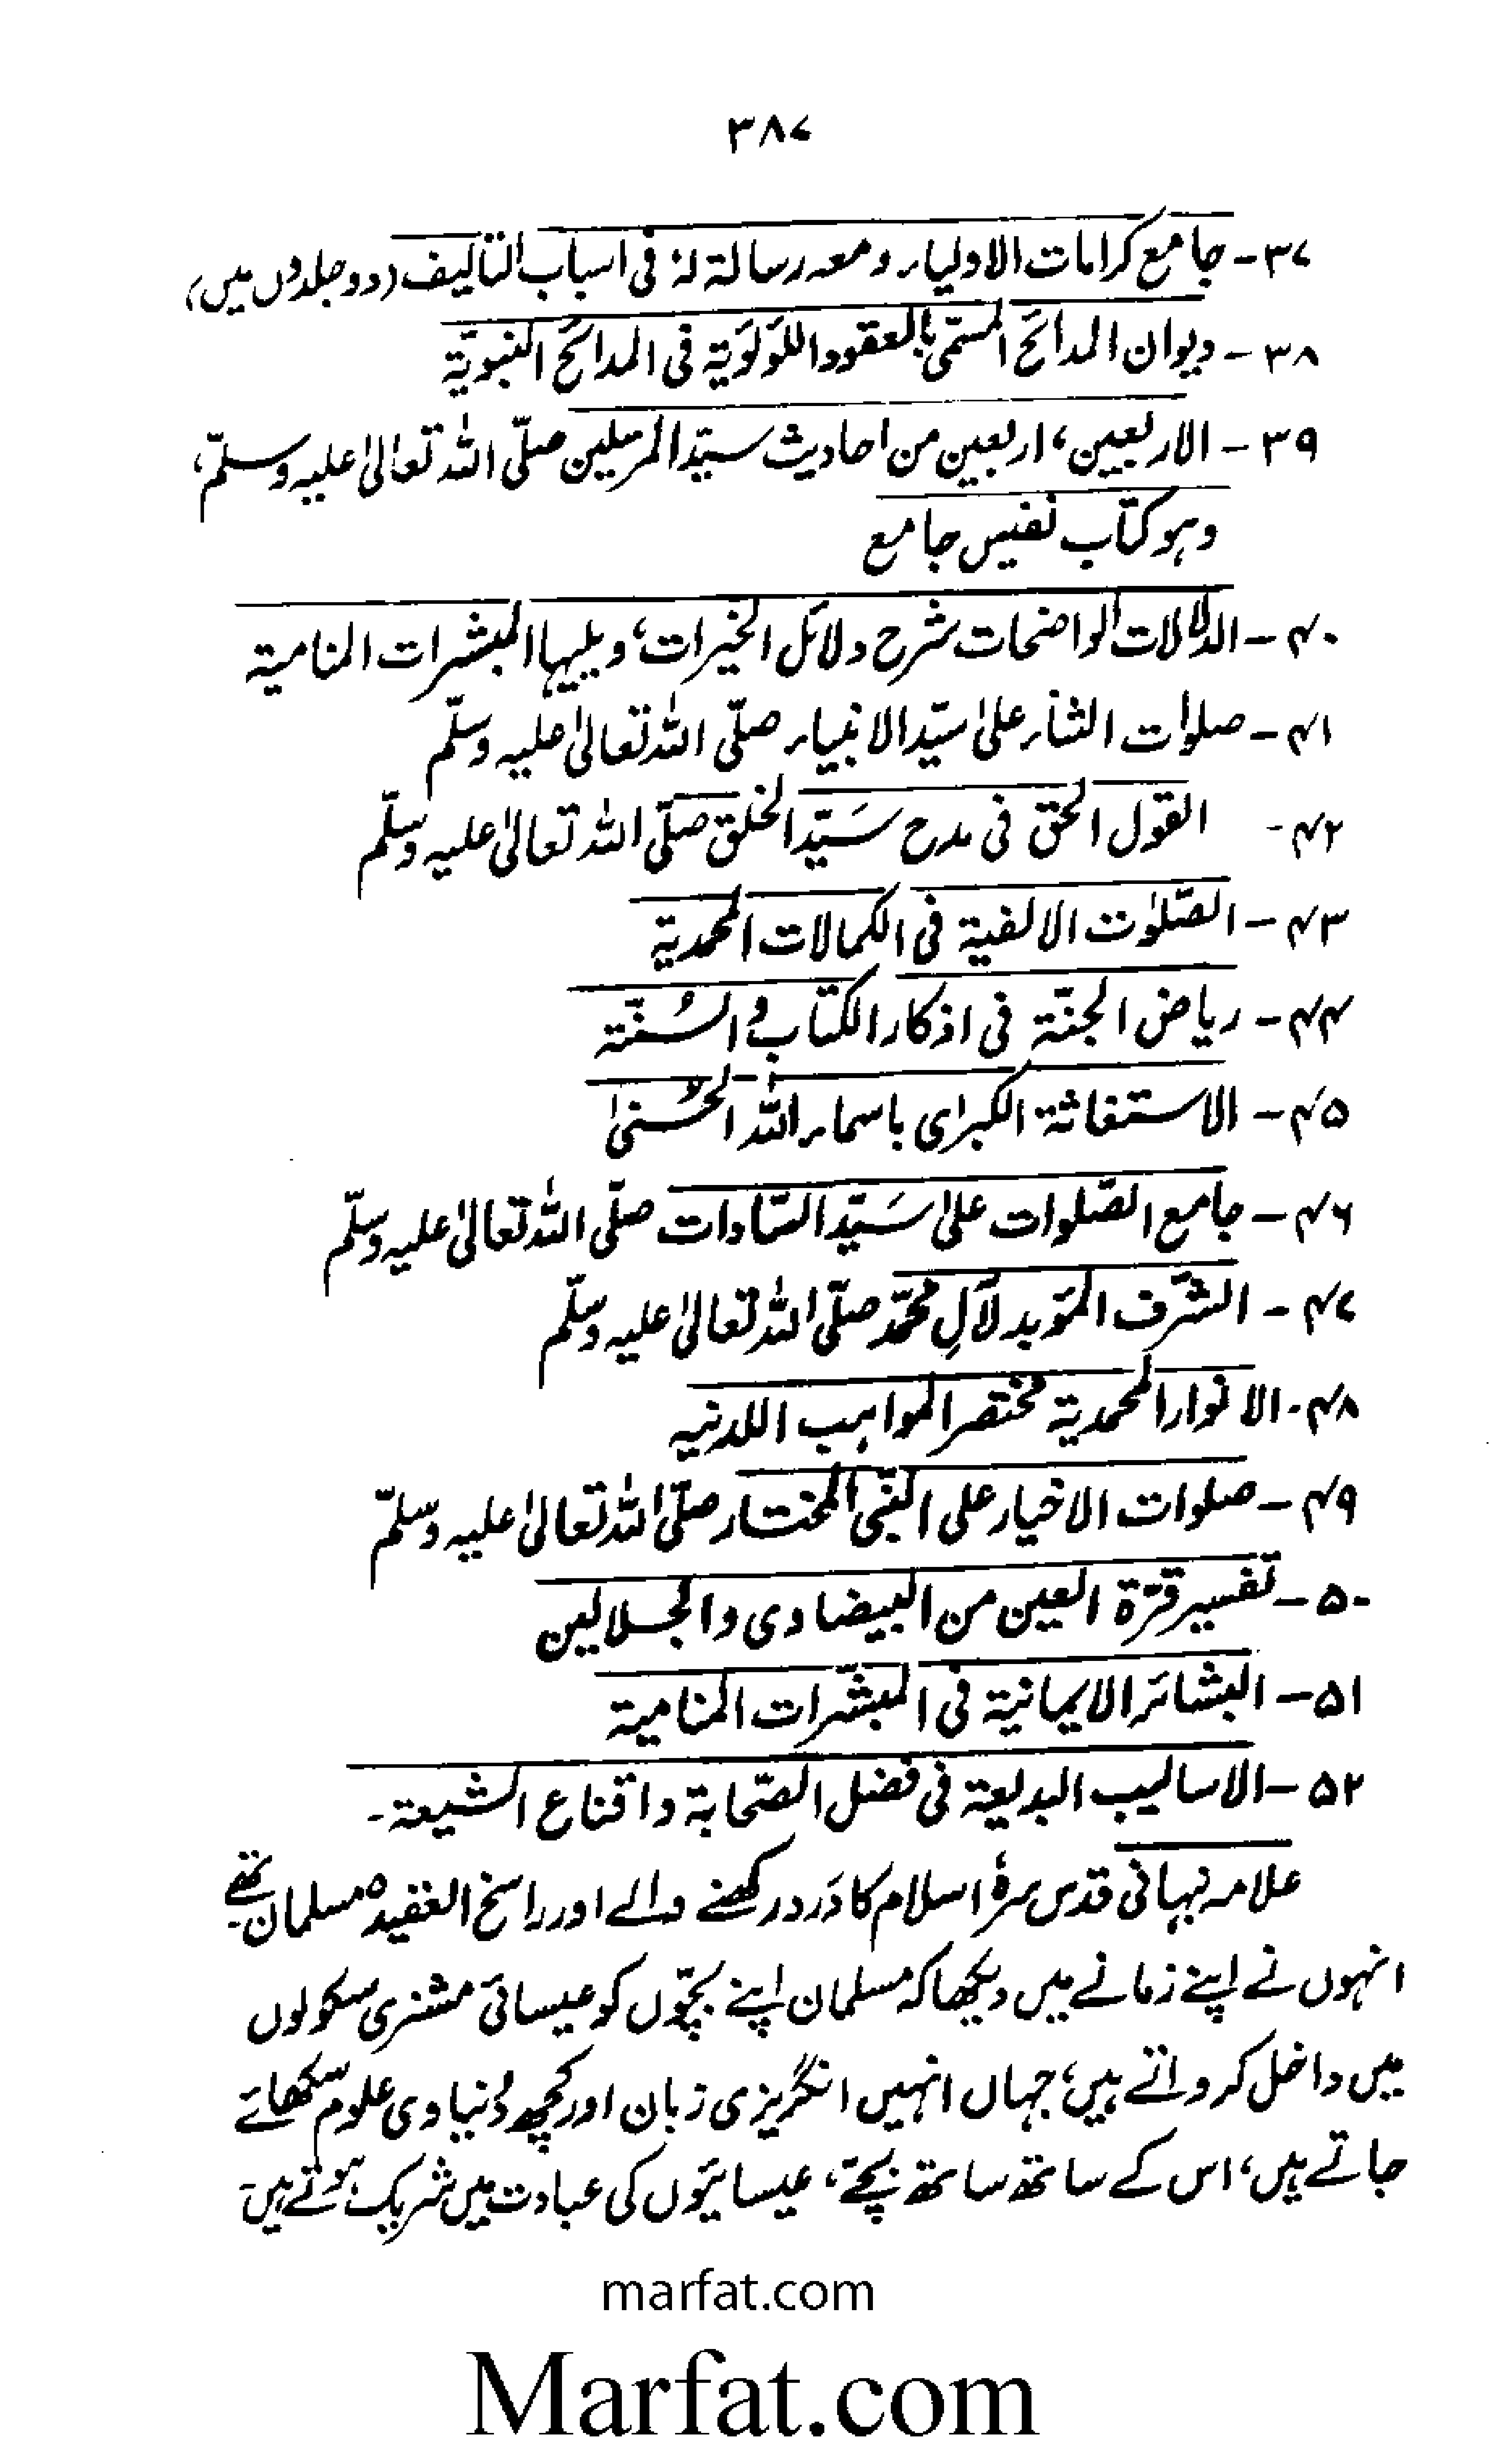 ۳۸۷
۳۷- جامع کرامات الاولیاء ومعہ رسالۃ لہٗ فی اسباب التألیف (دو جلدوں میں)
۳۸- دیوان المدائح المسمّٰی بالعقود اللؤلؤیۃ فی المدائح النبویّۃ
۳۹- الاربعین، اربعین من احادیث سیّد المرسلین صلّی اللہ تعالیٰ علیہ وسلّم،
وہو کتاب نفیس جامع
۴۰- الدلالات الواضحات شرح دلائل الخیرات، ویلیہا المبشرات المنامیۃ
۴۱- صلوات الثناء علیٰ سیّد الانبیاء صلّی اللہ تعالیٰ علیہ وسلّم
۴۲- القول الحق فی مدح سَیّد الخلق صلّی اللہ تعالیٰ علیہ وسلّم
۴۳- الصّلوٰت الالفیۃ فی الکمالات المحمدیۃ
۴۴- ریاض الجنّۃ فی اذکار الکتاب و السُنّۃ
۴۵- الاستغاثۃ الکبرٰی باسماء اللہ الحُسنیٰ
۴۶- جامع الصّلوات علیٰ سَیّد السّادات صلّی اللہ تعالیٰ علیہ وسلّم
۴۷- الشّرف المؤبد لآلِ محمّد صلّی اللہ تعالیٰ علیہ وسلّم
۴۸- الانوار المحمدیۃ مختصر المواہب اللدنیہ
۴۹- صلوات الاخیار علی النّبی المختار صلّی اللہ تعالیٰ علیہ وسلّم
۵۰- تفسیر قرّۃ العین من البیضاوی والجلالین
۵۱- البشائر الایمانیۃ فی المبشّرات المنامیۃ
۵۲- الاسالیب البدیعۃ فی فضل الصّحابۃ واقناع الشیعۃ۔
علامہ نبہانی قدس سرہٗ اسلام کا دَرد رکھنے والے اور راسخ العقیدہ مسلمان تھے۔
انہوں نے اپنے زمانے میں دیکھا کہ مسلمان اپنے بچّوں کو عیسائی مشنری سکولوں
میں داخل کرواتے ہیں، جہاں انہیں انگریزی زبان اور کچھ دُنیاوی علوم سکھائے
جاتے ہیں، اس کے ساتھ ساتھ بچّے، عیسائیوں کی عبادت میں شریک ہوتے ہیں۔
marfat.com
Marfat.com